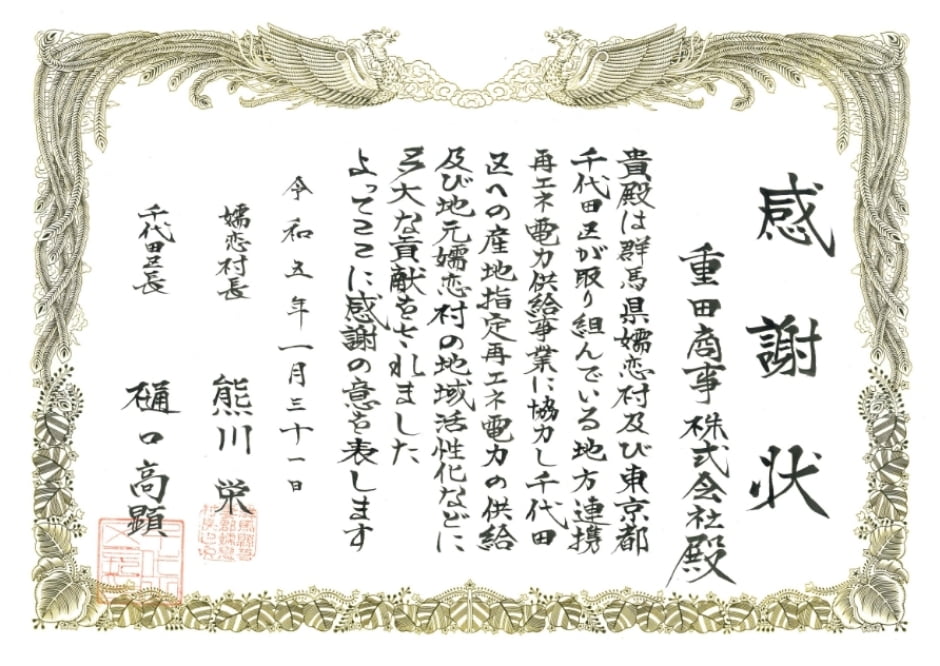 感謝状
重田商事株式会社殿
貴殿は群馬県嬬恋村及び東京都
千代田区が取り組んでいる地方連携
再エネ電力供給事業に協力し千代田
区への産地指定再エネ電力の供給
及び地元嬬恋村の地域活性化などに
多大な貢献をされました
よってここに感謝の意を表します
令和五年一月三十一日
嬬恋村長 熊川栄
千代田区長 樋口高顕